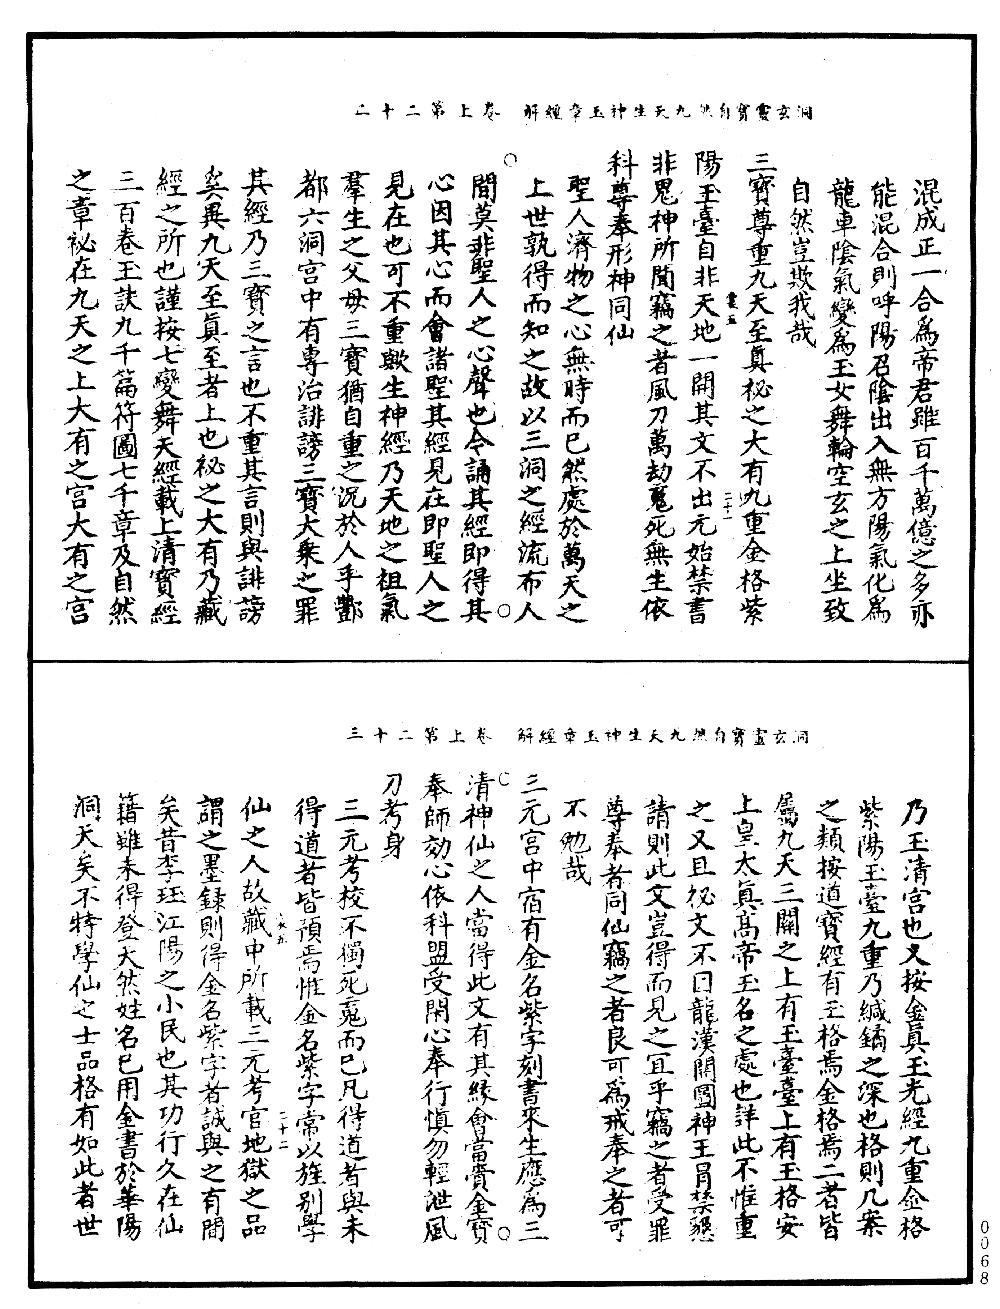 洞玄靈寶自然九天生神玉章經解　卷上第二十二
混成正一合爲帝君雖百千萬億之多亦
能混合則呼陽召陰出入無方陽氣化爲
龍車陰氣變爲玉女舞輪空玄之上坐致
自然豈欺我哉
三寶尊重九天至眞祕之大有九重金格紫
陽玉臺自非天地一開其文不出元始禁書
非鬼神所聞竊之者風刀萬劫魂死無生依
科尊奉形神同仙
聖人濟物之心無時而已然處於萬天之
上世孰得而知之故以三洞之經流布人
間莫非聖人之心聲也今誦其經即得其
心因其心而會諸聖其經見在即聖人之
見在也可不重歟生神經乃天地之祖氣
羣生之父母三寶猶自重之況於人乎酆
都六洞宮中有專治誹謗三寶大乘之罪
其經乃三寶之言也不重其言則與誹謗
奚異九天至眞至者上也祕之大有乃藏
經之所也謹按七變舞天經載上清寶經
三百卷玉訣九千篇符圖七千章及自然
之章祕在九天之上大有之宮大有之宮
洞玄靈寶自然九天生神玉章經解　卷上第二十三
乃玉清宮也又按金眞玉光經九重金格
紫陽玉臺九重乃緘鐍之深也格則几案
之類按道寶經有玉格焉金格焉二者皆
屬九天三關之上有玉臺臺上有玉格安
上皇太眞高帝玉名之處也詳此不惟重
之又且祕文不日龍漢開圖神王冐禁懇
請則此文豈得而見之宜乎竊之者受罪
尊奉者同仙竊之者良可爲戒奉之者可
不勉哉
三元宮中宿有金名紫字刻書來生應爲三
清神仙之人當得此文有其緣會當賫金寶
奉師効心依科盟受閑心奉行慎勿輕泄風
刀考身
三元考校不獨死魂而已凡得道者與未
得道者皆預焉惟金名紫字常以旌别學
仙之人故藏中所載三元考官地獄之品
謂之墨録則得金名紫字者誠與之有間
矣昔李珏江陽之小民也其功行久在仙
籍雖未得登天然姓名已用金書於華陽
洞天矣不特學仙之士品格有如此者世
0068